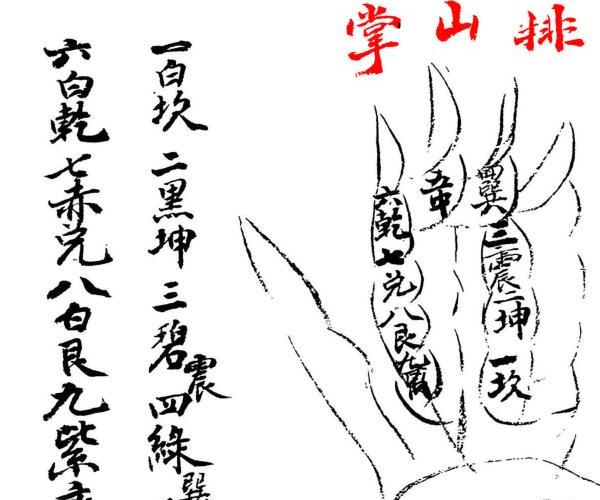 排山掌
一白坎二黑坤三碧震四綠巽
六白乾七赤兑八白艮九紫
四巽
三震
二坤
一坎
五中
六乾
七兑
八艮
九離